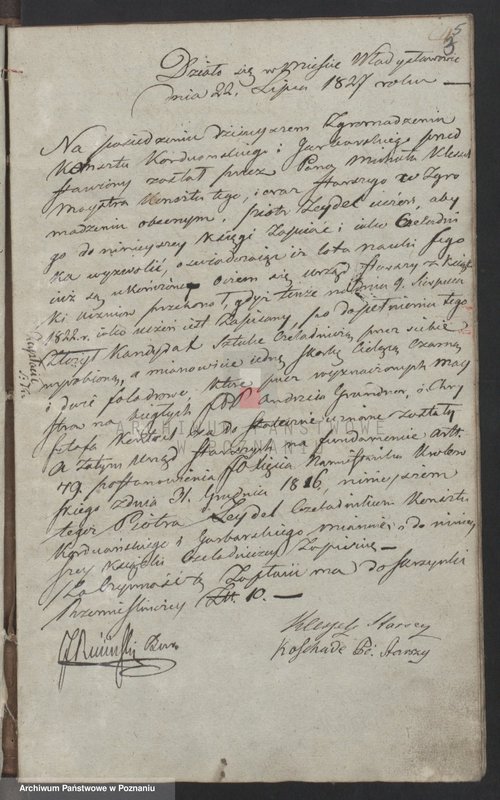 5
3
Działo się w mieście Władysławowie
dnia 22. Lipca 1827 roku —
Na posiedzeniu dzisieyszem Zgromadzenia
Konsztu Korduańskiego i Garbarskiego przed
stawiony został przez Pana
Maystra Konsztu tego, i oraz Starszego w Zgro
madzeniu obecnym, Piotr Zeydel uczeń, aby
go do ninieyszey Księgi zapisać i iako Czeladni
ka wyzwolić, a ile lata nauki iego
iuż są ukończone, o ciem się urząd Starszy z Książ
ki uczniów przekonał, gdyż tenże na dniu 9. Sierpnia
1822. r. iako uczeń iest zapisany, po dopełnieniu tego
złożył Kandydat Sztukę Czeladniczą przez siebie
wyrobioną, a mianowicie iedną skórkę Cielęcą Czarną
i dwie przez wyznaczonych May
strow na biegłych JPP. Andrzeia Grundner, i Chry
sztofa za dostateczne uznane zostały
A zatym urząd Starszych na fundamencie Artk.
79. postanowienia JO. Xięcia Namiestnika Królew
skiego z dnia 31. Grudnia 1816, ninieyszem
tegoż Piotra Zeydel Czeladnikiem Konsztu
Korduańskiego i Garbarskiego mianuie i do niniey
szey Książki Czeladniczey zapisuie —
Za Czynność tę zapłacił ma do Skrzynki
Rzemieślniczey Zł. 10. —
Zapłacił
Starszy
Koschade Pd. Starszy
Burm
ARCHIWUM PAŃSTWOWE
W POZNANIU
Archiwum Państwowe w Poznaniu